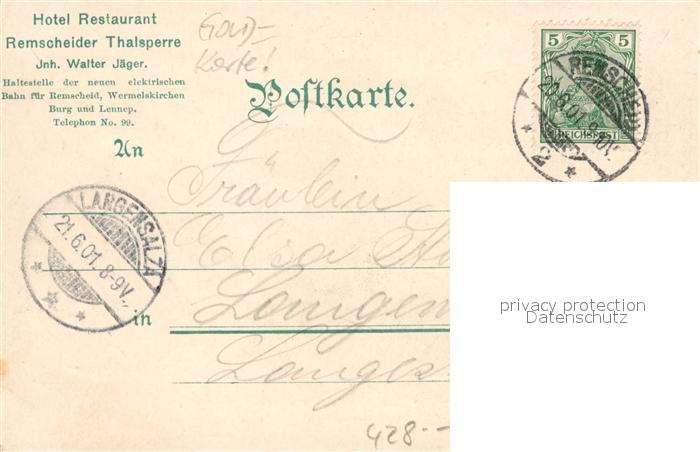 Hotel Restaurant
Remscheider Thalsperre
Jnh. Walter Jäger.
Haltestelle der neuen elektrischen
Bahn für Remscheid, Wermelskirchen
Burg und Lennep.
Telephon No. 99.
Karte!
Postkarte.
5 5
REICHSPOST
REMSCHEID
20.6.01. 10V.
* 2 *
An
Fräulein
Elsa
LANGENSALZA
21.6.01. 8-9V.
* * *
in
428.--
privacy protection
Datenschutz